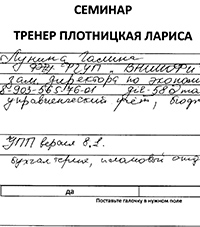 СЕМИНАР
ТРЕНЕР ПЛОТНИЦКАЯ ЛАРИСА
Лукина Галина
ФГУП ВНИИОФИ
зам. директора по эконом
8-903-565-76-01
управленческий учёт, бюдж
УПП версия 8.2.
бухгалтерия,
да
Поставьте галочку в нужном поле